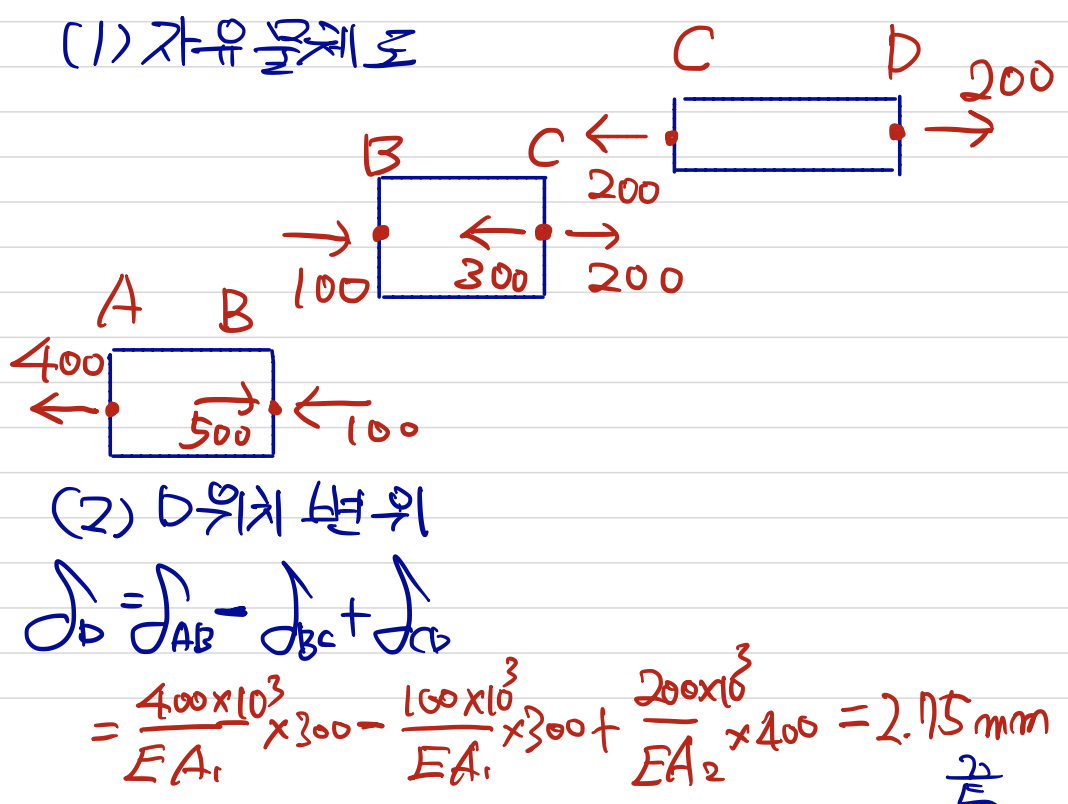 (1) 자유물체도
C D 200
200
B C
100 300 200
A B
400 500 100
(2) D위치 변위
δD = δAB - δBC + δCD
= 400×10³/EA₁ ×300 - 100×10³/EA₁ ×300 + 200×10³/EA₂ ×400 = 2.75mm